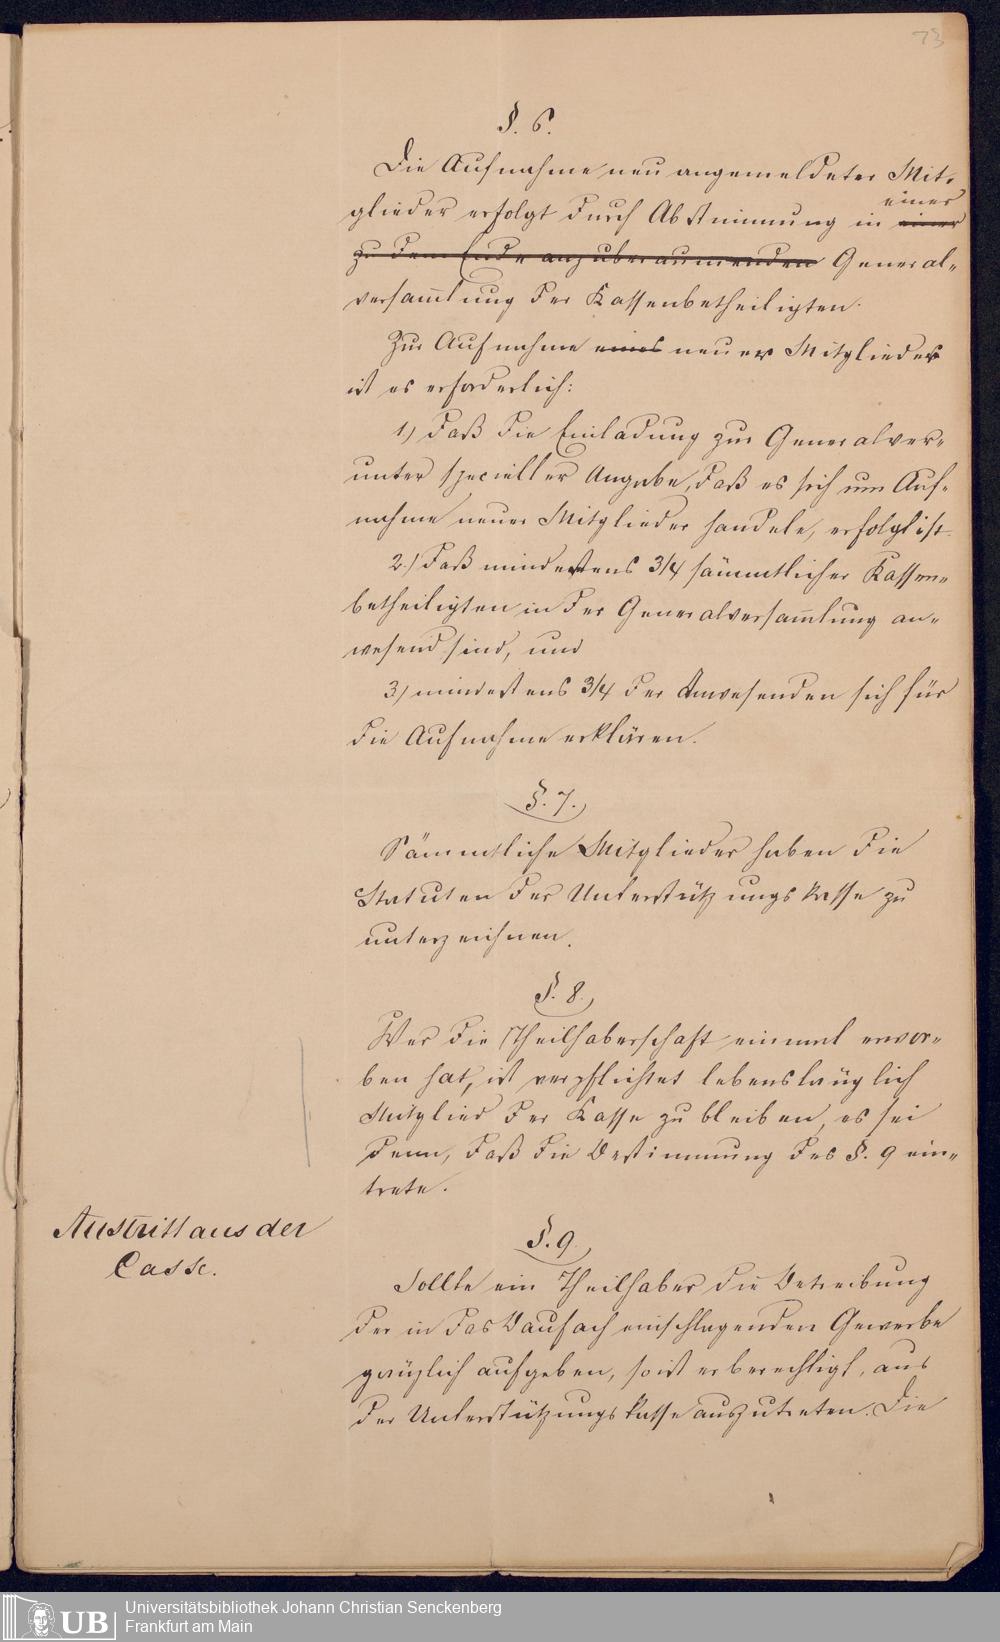 73
§. 6.
Die Aufnahme neu angemeldeter Mit-
einer
glieder erfolgt durch Abstimmung in einer
zu dem Ende anzuberaumenden General-
versammlung der Kassenbetheiligten.
Zur Aufnahme eines neuer Mitglieder
ist es erforderlich:
1.) daß die Einladung zur Generalver-
unter specieller Angabe, daß es sich um Auf-
nahme neuer Mitglieder handele, erfolgt ist.
2.) daß mindestens 3/4 sämmtlicher Kassen-
betheiligten in der Generalversammlung an-
wesend sind, und
3.) mindestens 3/4 der Anwesenden sich für
die Aufnahme erklären.
§. 7.
Sämmtliche Mitglieder haben die
Statuten der Unterstützungskasse zu
unterzeichnen.
§. 8.
Wer die Theilhaberschaft einmal erwor-
ben hat, ist verpflichtet lebenslänglich
Mitglied der Kasse zu bleiben, es sei
denn, daß die Bestimmung des §. 9 ein-
trete.
Austritt aus der
Casse.
§. 9.
Sollte ein Theilhaber die Betreibung
der in das Baufach einschlagenden Gewerbe
gänzlich aufgeben, so ist er berechtigt, aus
der Unterstützungskasse auszutreten. Die
UB
Universitätsbibliothek Johann Christian Senckenberg
Frankfurt am Main